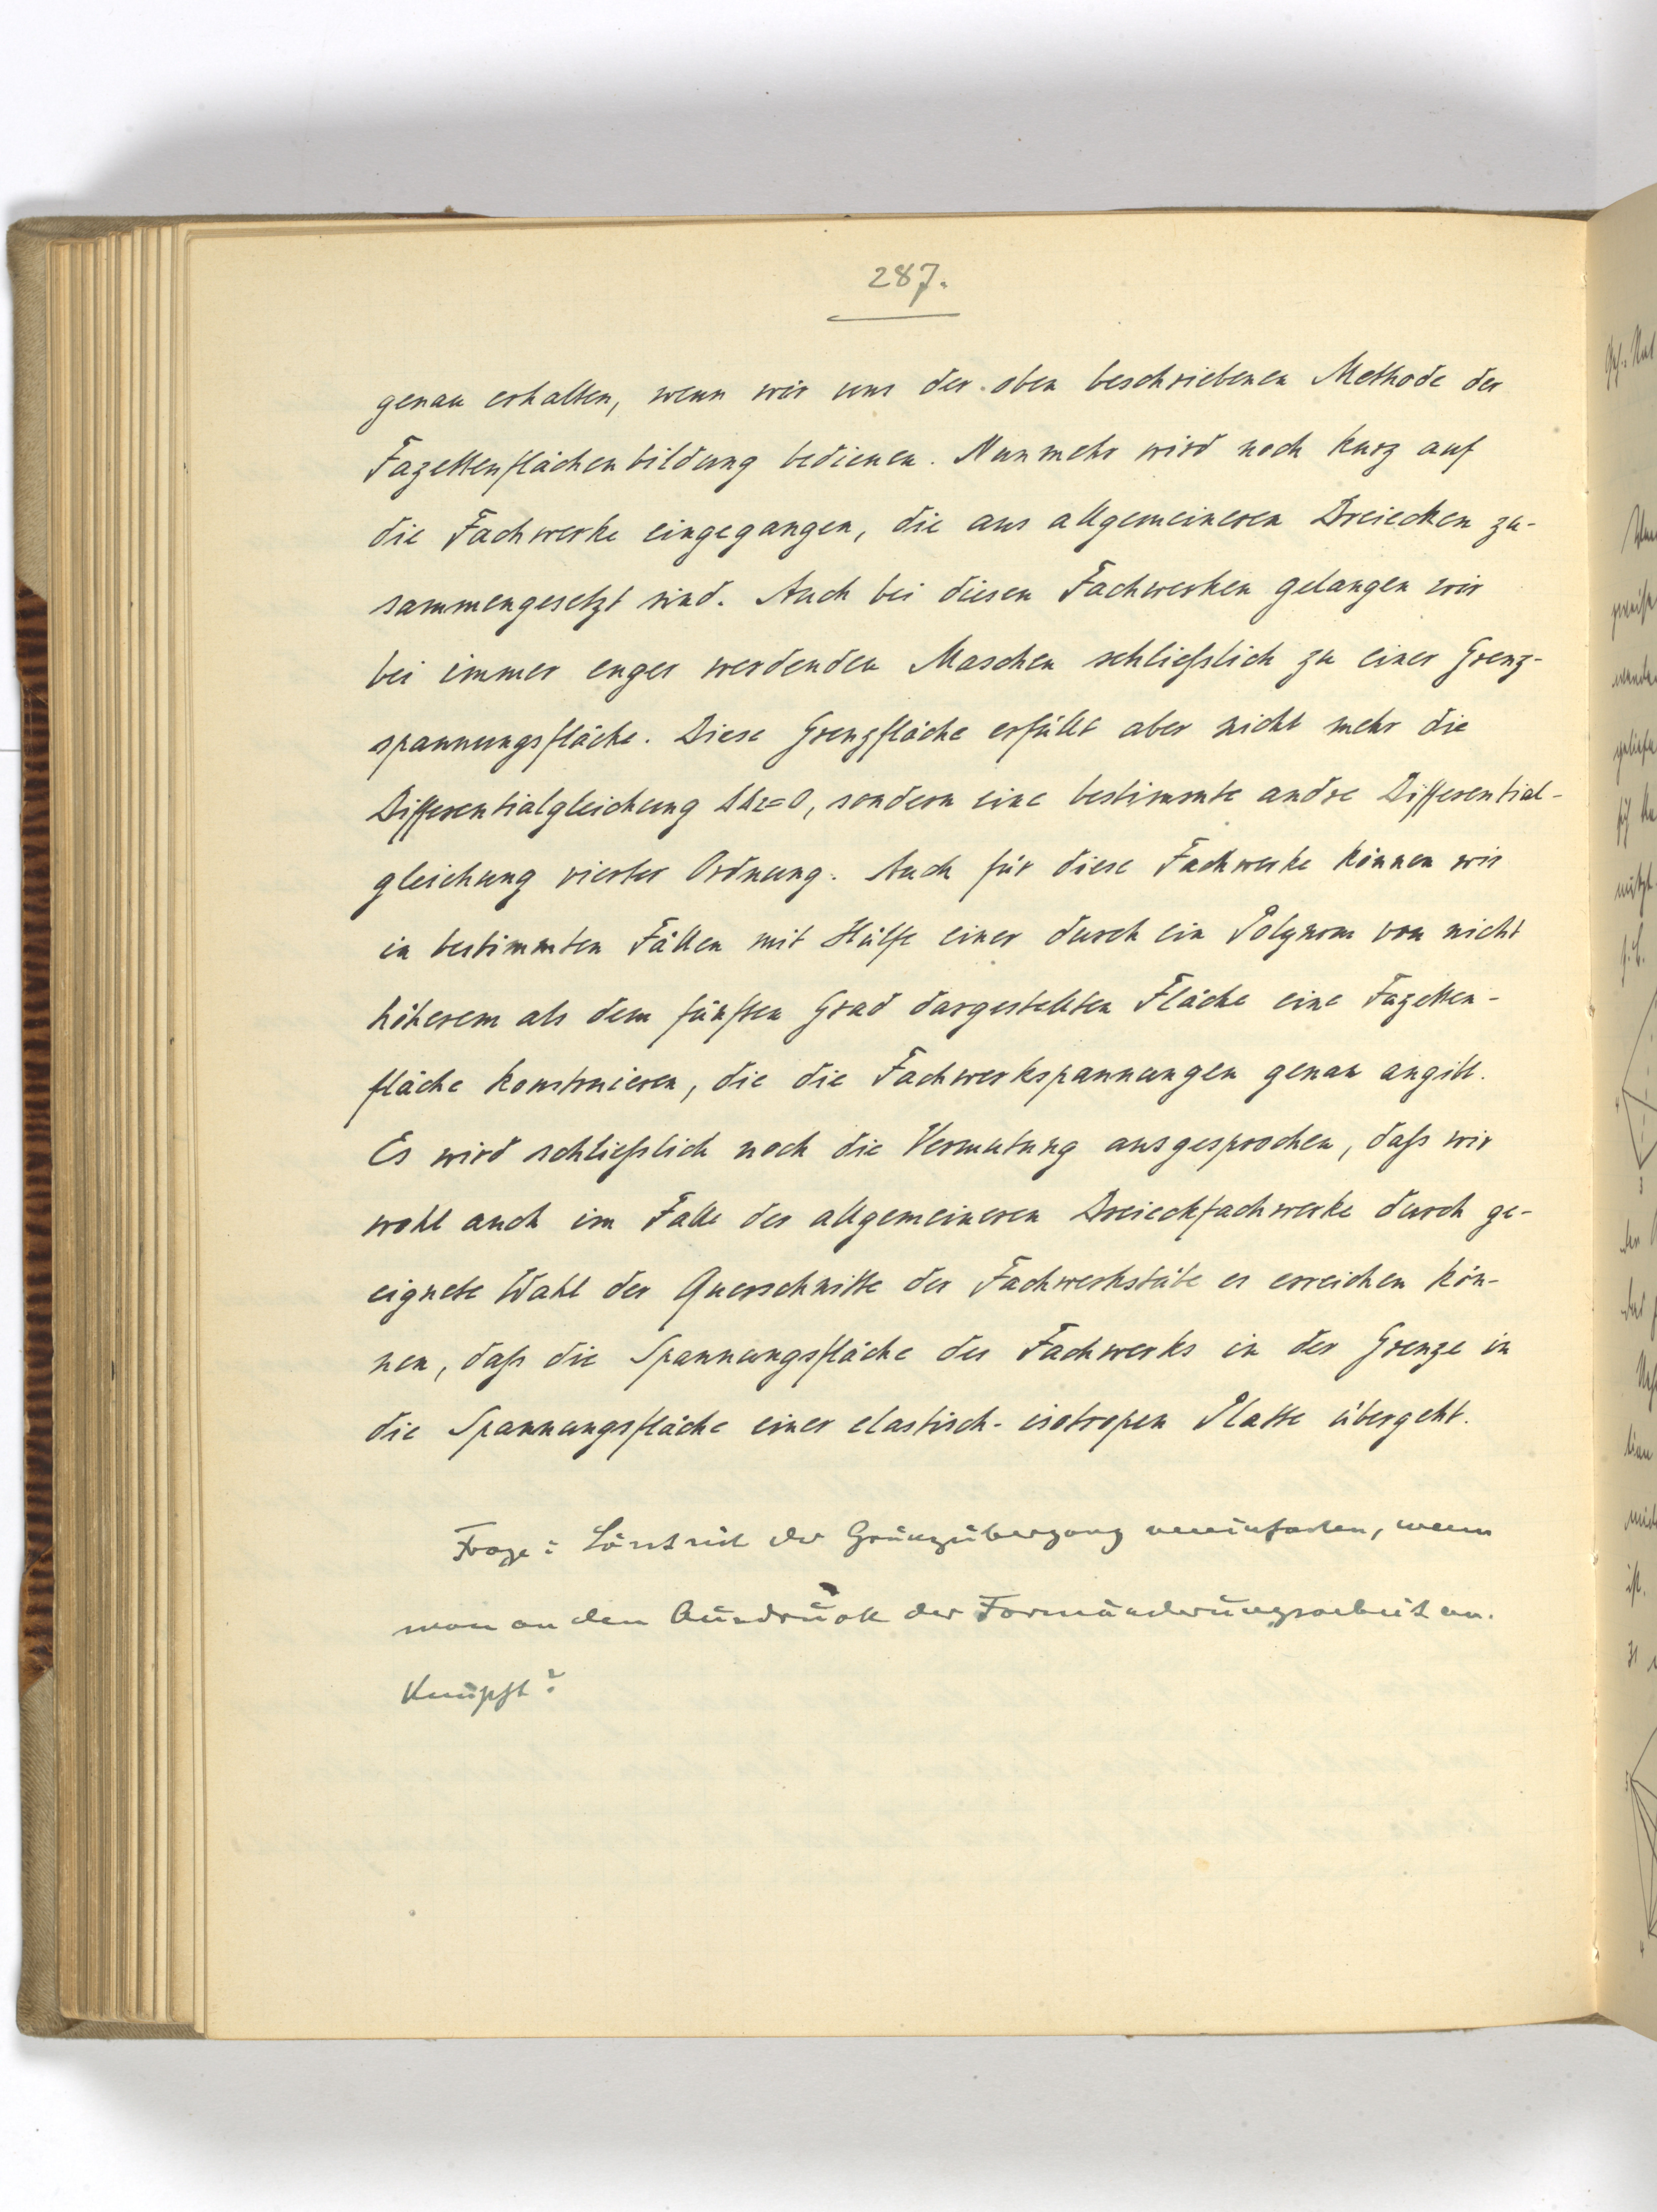 287.
genau erhalten, wenn wir uns der oben beschriebenen Methode der
Fazettenflächenbildung bedienen. Nunmehr wird noch kurz auf
die Fachwerke eingegangen, die aus allgemeineren Dreiecken zu-
sammengesetzt sind. Auch bei diesen Fachwerken gelangen wir
bei immer enger werdenden Maschen schließlich zu einer Grenz-
spannungsfläche. Diese Grenzfläche erfüllt aber nicht mehr die
Differentialgleichung ΔΔz=0, sondern eine bestimmte andre Differential-
gleichung vierter Ordnung. Auch für diese Fachwerke können wir
in bestimmten Fällen mit Hülfe einer durch ein Polynom von nicht
höherem als dem fünften Grad dargestellten Fläche eine Fazetten-
fläche konstruieren, die die Fachwerkspannungen genau angibt.
Es wird schließlich noch die Vermutung ausgesprochen, daß wir
wohl auch im Falle der allgemeineren Dreieckfachwerke durch ge-
eignete Wahl der Querschnitte der Fachwerkstäbe es erreichen kön-
nen, daß die Spannungsfläche des Fachwerks in der Grenze in
die Spannungsfläche einer elastisch-isotropen Platte übergeht.
Frage: Lässt sich der Grenzübergang vereinfachen, wenn
man an den Ausdruck der Formänderungsarbeit an-
knüpft?